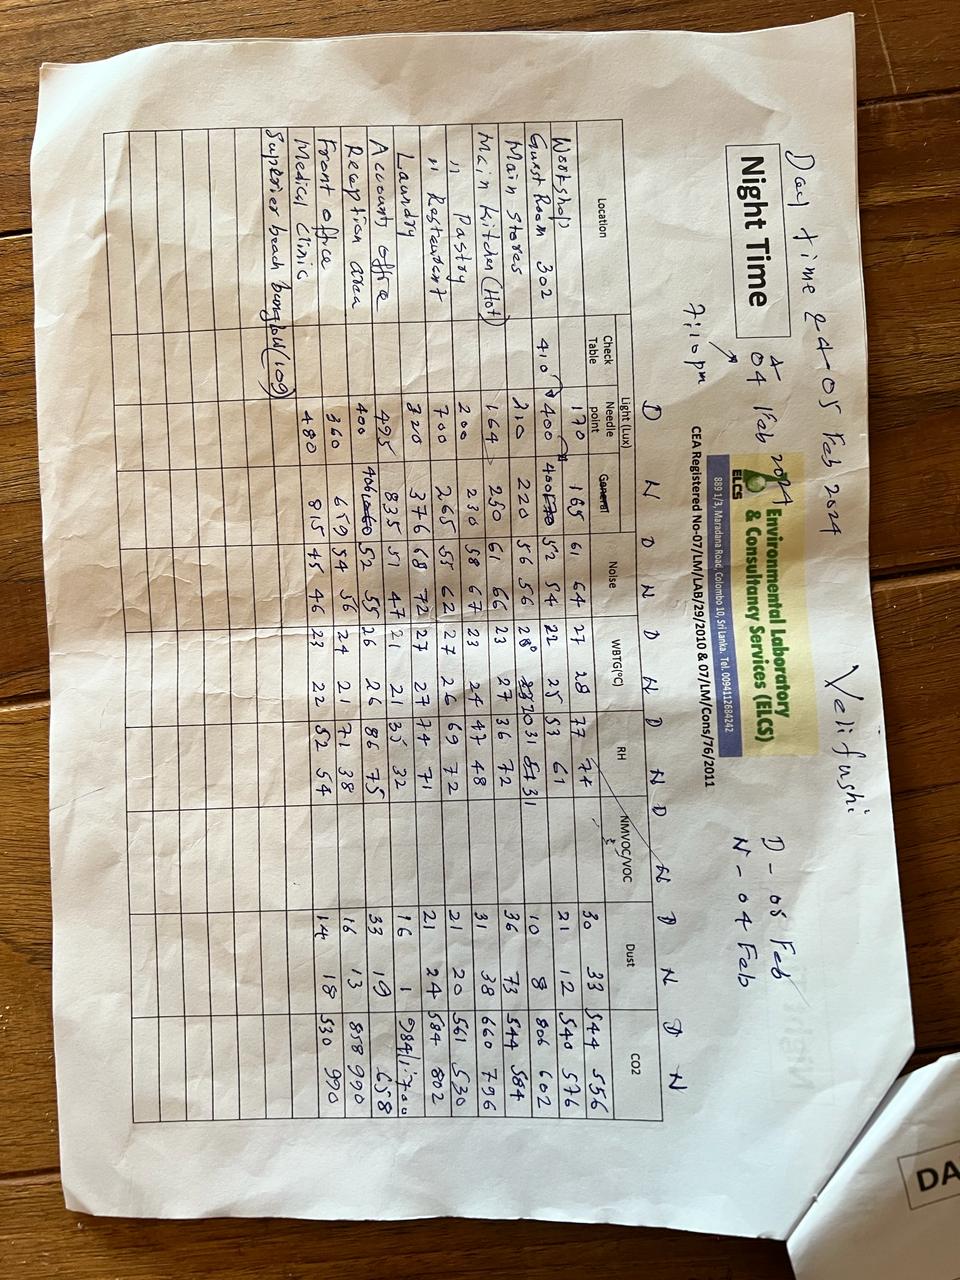 Velifushi
Day time & 4-05 Feb 2024
D - 05 Feb
N - 04 Feb
Night Time
04 Feb 2024
7:10 pm
ELCS
Environmental Laboratory
& Consultancy Services (ELCS)
889 1/3, Maradana Road, Colombo 10, Sri Lanka. Tel. 0094112684242
CEA Registered No-07/LM/LAB/29/2010 & 07/LM/Cons/76/2011
D N D N D N D N D N D N D N
Location Light (Lux) Noise WBTG(°C) RH NMVOC/VOC Dust CO2
Check Table Needle point General
Workshop 170 165 61 64 27 28 77 74 30 33 544 556
Guest Room 302 410 400 400 52 54 22 25 53 61 21 12 540 576
Main Stores 210 220 56 56 28 31 31 10 8 806 602
Main Kitchen (Hot) 164 250 61 66 23 27 36 72 36 73 544 584
" Pastry 200 230 58 67 23 24 47 48 31 38 660 796
" Restaurent 700 265 55 62 27 26 69 72 21 20 561 530
Laundry 320 376 68 72 27 27 74 71 21 24 584 802
Accounts office 495 835 51 47 21 21 35 32 16 1
Reception area 400 52 55 26 26 86 75 33 19 658
Front office 360 659 54 56 24 21 71 38 16 13 858 990
Medical Clinic 480 815 45 46 23 22 52 54 14 18 530 990
Superier beach bunglow (109)
DA